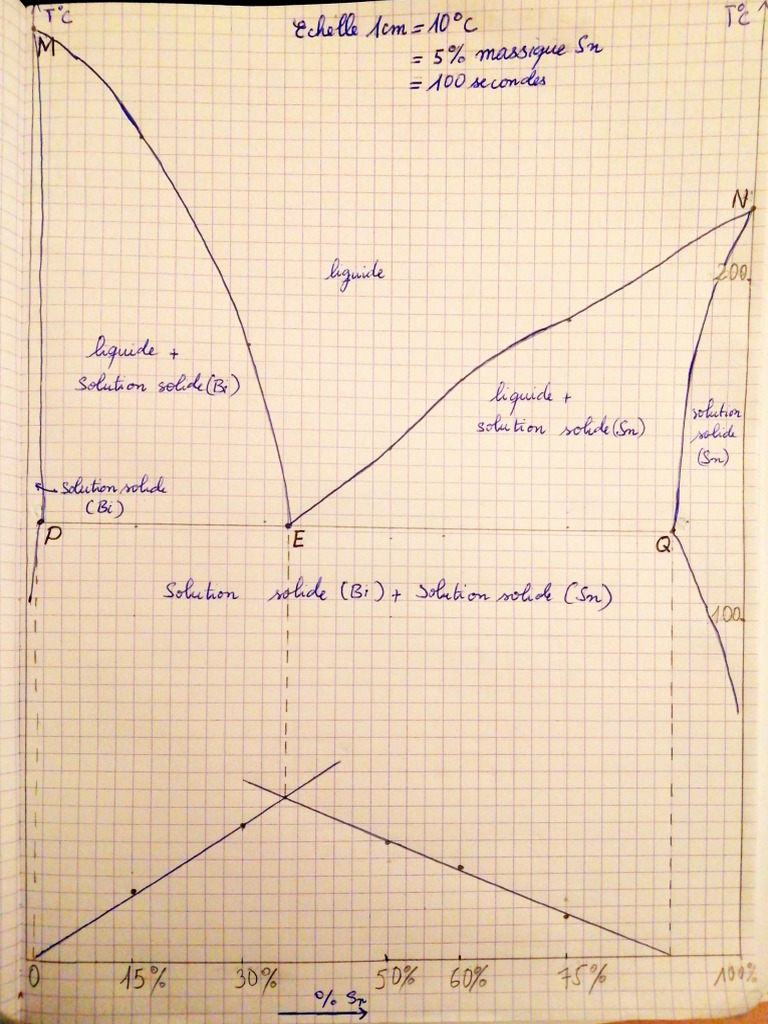 T°C
Echelle 1cm = 10°C
= 5% massique Sn
= 100 secondes
T°C
M
N
liquide
200
liquide +
Solution solide (Bi)
liquide +
solution solide (Sn)
solution
solide
(Sn)
Solution solide
(Bi)
P
E
Q
Solution solide (Bi) + Solution solide (Sn)
100
0 15% 30% 50% 60% 75% 100%
% Sn